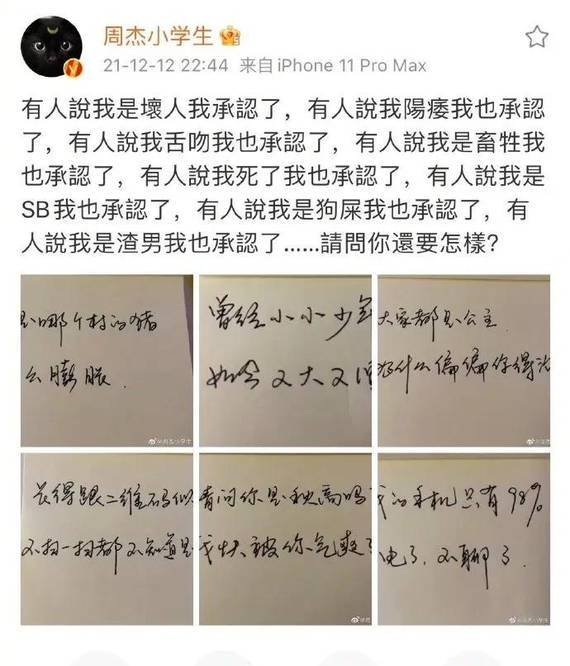 周杰小学生
21-12-12 22:44 来自 iPhone 11 Pro Max
有人說我是壞人我承認了，有人說我陽痿我也承認
了，有人說我舌吻我也承認了，有人說我是畜牲我
也承認了，有人說我死了我也承認了，有人說我是
SB我也承認了，有人說我是狗屎我也承認了，有
人說我是渣男我也承認了……請問你還要怎樣？
是哪个村的猪
么膨胀.
曾经小小少年
如今又大又
大家都是公主
为什么偏偏你得
长得跟二维码似
不扫一扫都不知道是
请问你是秋高吗
我快被你气爽了
我的手机只有98%
电了，不聊了.